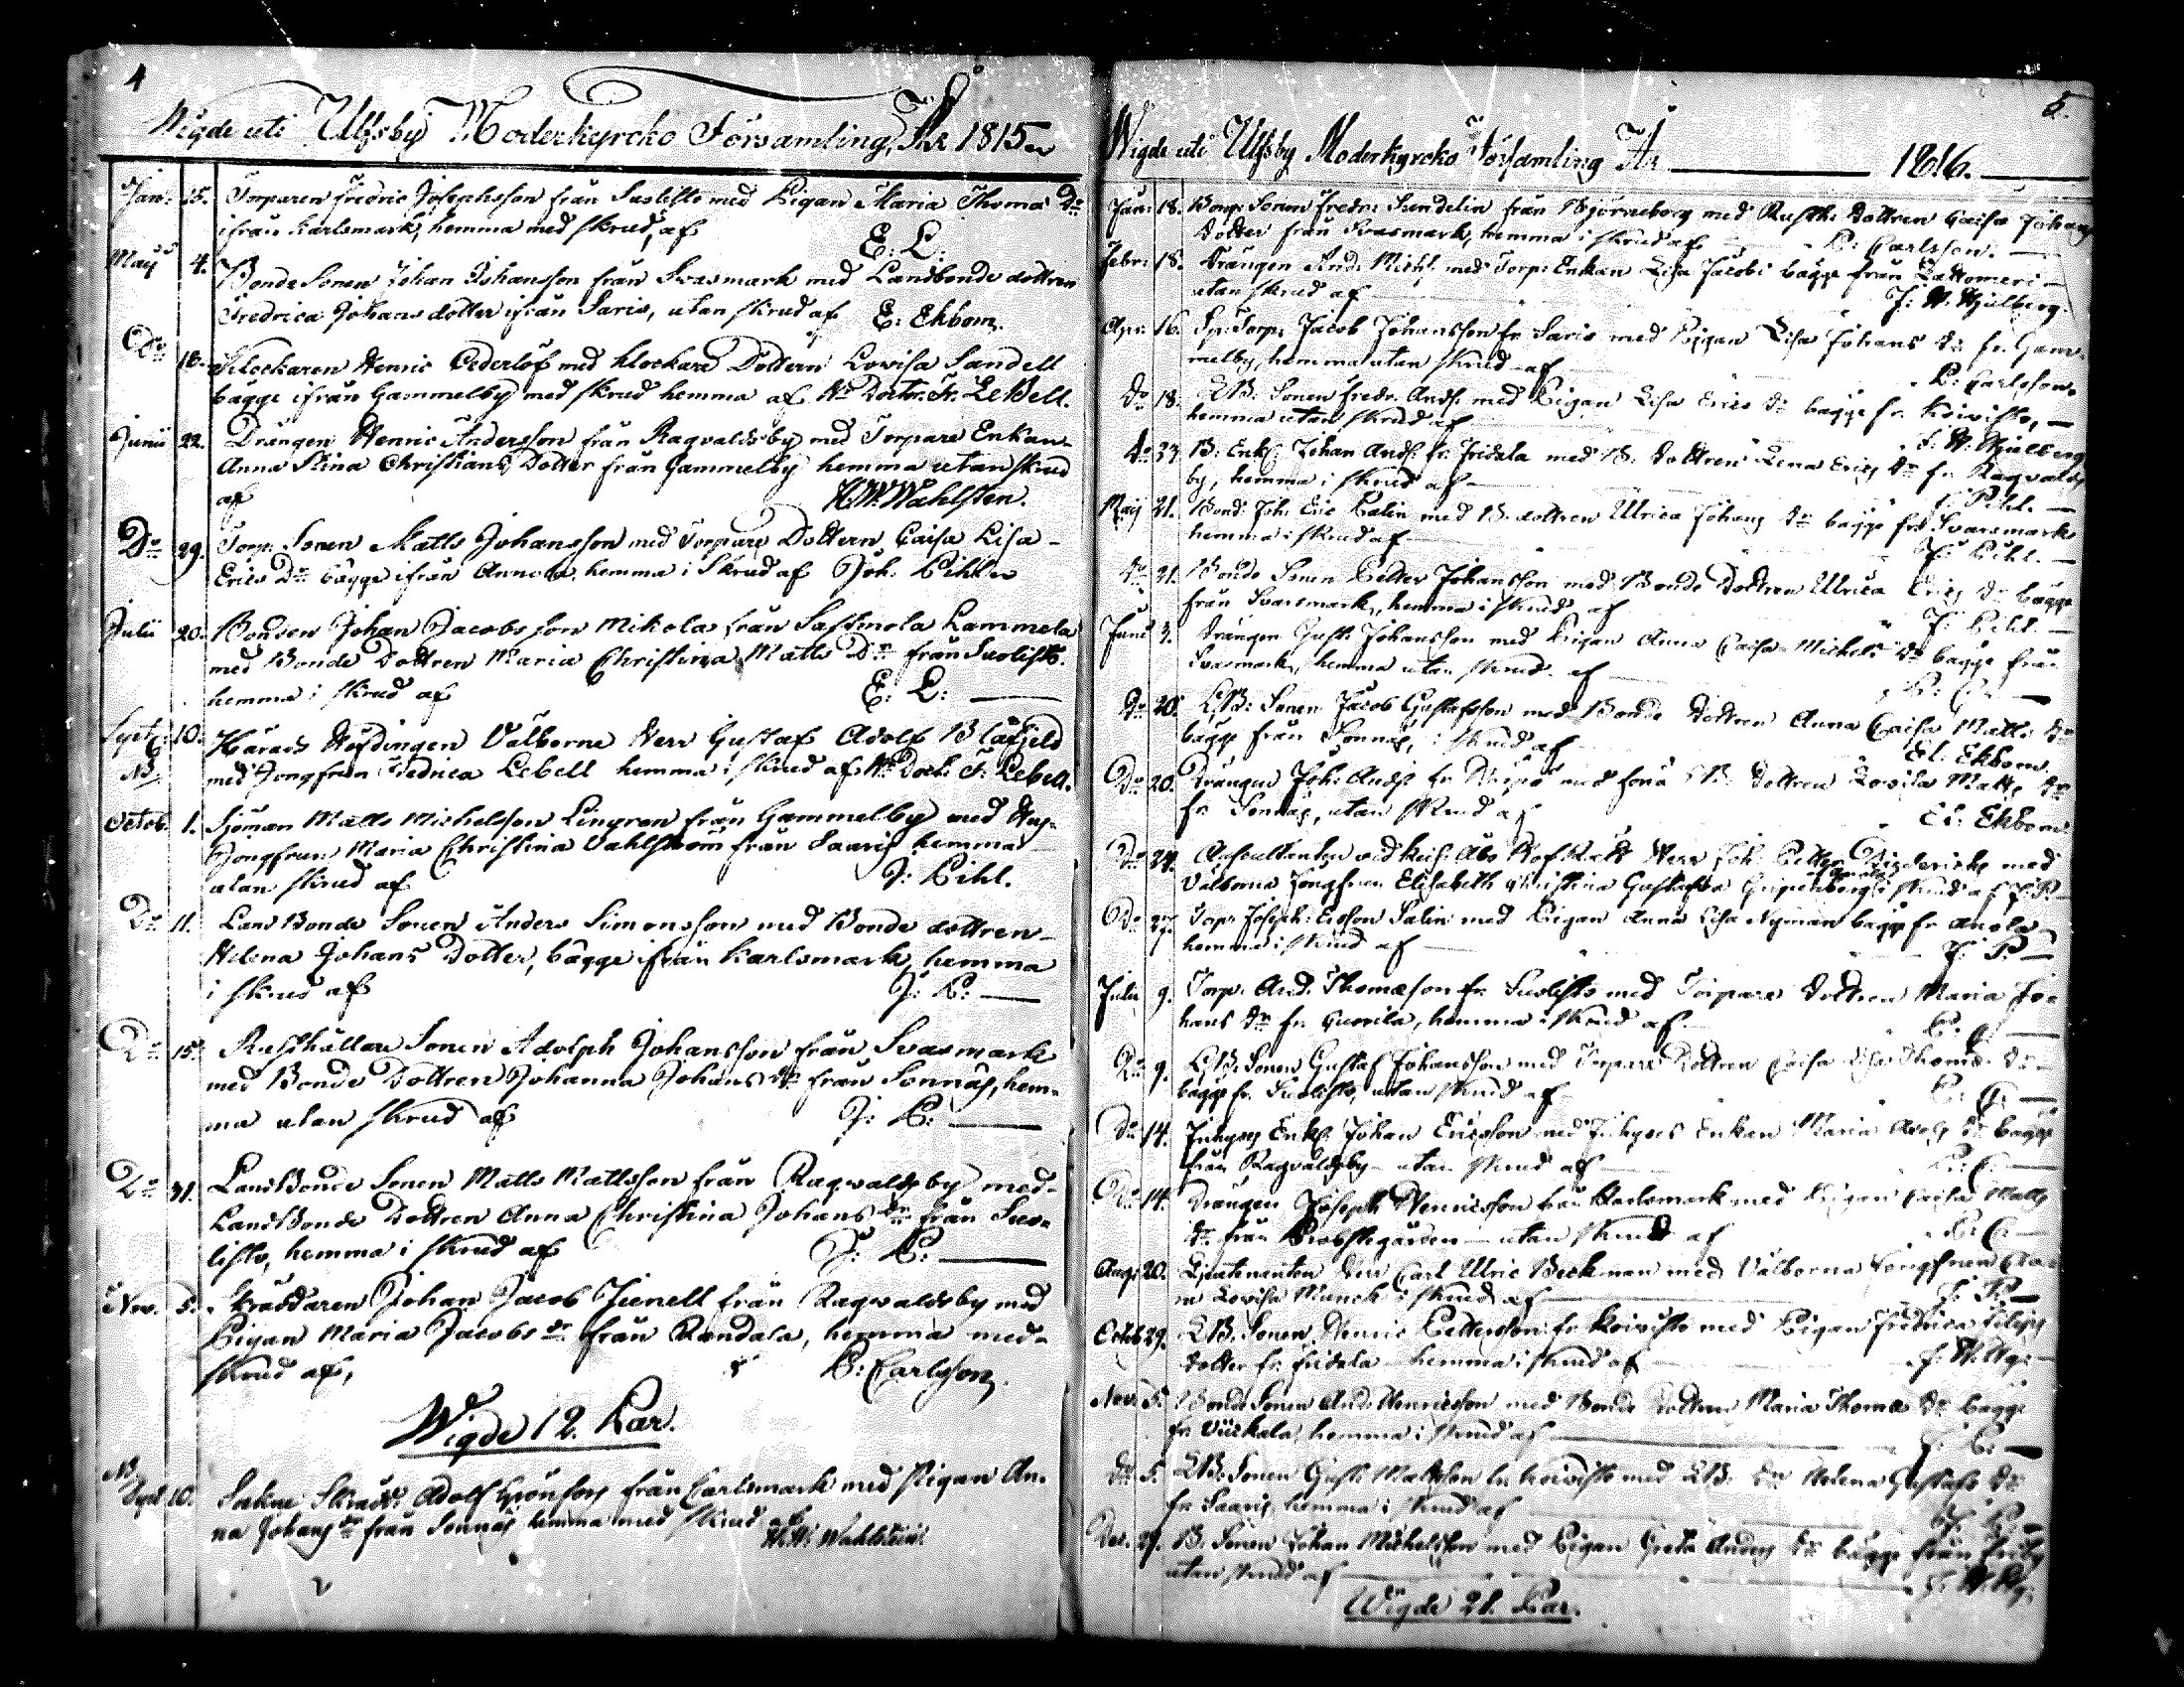 4
Wigde uti Ulfsby Moderkyrcko Församling, År 1815
Jan: 15. Torparen Fredric Josephsson från Suolisto med Pigan Maria Thomas Dr
ifrån Karlsmark, hemma med skrud, af E: L:
Maij 4. Bonde Sonen Johan Johansson från Svasmark med Landbonde dottren
Fredrica Johans dotter ifrån Saris, utan skrud af E: Ekbom.
Do 16. Klockaren Henric Cederlöf med Klockare Dottern Lovisa Sandell
bägge ifrån Gammelby med skrud hemma af Hr Doctor Fr. LeBell.
Junii 22. Drängen Henric Andersson från Ragvaldsby med Torpare Enkan
Anna Stina Christians Dotter från Gammelby hemma utan skrud
af H. W. Wahlsten.
Do 29. Torp. Sonen Matts Johansson med Torpare Dottern Caisa Lisa
Erics Dr bägge ifrån Annola, hemma i Skrud af Joh. Pihl
Julii 20. Bonden Johan Jacobsson Mikola från Sastmola Lammela
med Bonde Dottren Maria Christina Matts Dr från Suolisto.
hemma i skrud af E: L:
Sept: 10. Härads Höfdingen Välborne Herr Gustaf Adolf Blåfjeld
NB med Jongfrun Fredrica Lebell hemma i skrud af Hr Doct: F: Lebell.
Octob. 1. Sjöman Matts Michelsson Lingren från Gammelby med
Jongfrun Maria Christina Vahlström från Saaris hemma
utan skrud af J: Pihl.
Do 11. Land Bonde Sonen Anders Simonsson med Bonde dottren
Helena Johans Dotter, bägge ifrån Karlsmark, hemma
i skrud af J: P:
Do 15. Rusthållare Sonen Adolph Johansson från Svasmark
med Bonde Dottren Johanna Johans dr från Sonnäs, hem-
ma utan skrud af J: P:
Do 31. LandBonde Sonen Matts Mattsson från Ragvaldsby med
LandBonde Dottren Anna Christina Johans dr från Suo-
listo, hemma i skrud af J: P:
Nov. 5. Skräddaren Johan Jacob Jienell från Ragwaldsby med
Pigan Maria Jacobs dr från Randala, hemma med
skrud af, P: Carlsson.
Wigde 12. Par.
NB
Sept 10. Sockne Skrädd: Adolf Grönfors från Carlsmark med Pigan An-
na Johans dr från Sonnäs hemma med skrud af
H. W. Wahlsten
5.
Wigde uti Ulfsby Moderkyrcko Församling År 1816.
Janu: 18. Borg: Sonen Fredr: Sundelin från Björneborg med Rusth: Dottren Caisa Johans
dotter från Svasmark, hemma i skrud af P: Carlsson.
Febr: 18. Drängen And: Mich: med Torp: Enkan Lisa Jacobs bägge från Lattomeri
utan skrud af
Apr: 16. Sp: Torp: Jacob Johansson fr Saris med Pigan Lisa Johans dr fr. Gam-
melby, hemma utan skrud af P: Carlsson
Do 18. LB. Sonen Fredr: Ands: med Pigan Lisa Erics dr bägge fr. Koivisto,
hemma utan skrud af
do 23 B: Enkl: Johan Ands: fr. Fridala med B: dottren Lena Erics dr fr. Ragvalds
by, hemma i skrud af J: Pihl.
Maij 21. Bond: Joh: Eric Palin med B. dottren Ulrica Johans dr bägge från Svarsmark
hemma i skrud af J: Pihl.
do 21. Bonde Sonen Petter Johansson med Bonde Dottren Ulrica Erics dr bägge
från Svarsmark, hemma i skrud af J: Pihl.
Junii 3. Drängen Gust: Johansson med Pigan Anna Caisa Michels dr bägge från
Svasmark, hemma utan skrud af P: C:
do 20. LB: Sonen Jacob Gustafsson med Bonde Dottren Anna Caisa Matts dr
bägge från Sonnäs, i skrud af El: Ekbom
Do 20. Drängen Joh: Ands: fr med B: dottren Lovisa Matts dr
fr Sonnäs, utan skrud af El: Ekbom
Do 24. Auscultanten vid Keis: Åbo Hof Rätt Herr Joh: Petter med
Välborna Jongfrun Elisabeth Christina Gustafva Gripenberg i skrud af
Do 27. Torp: Joseph: Ersson Salin med Pigan Anna Lisa Nyman bägge fr Anola
hemma i skrud af J: P:
Julii 9. Torp: And: Thomæson fr. Suolisto med Torpare Dottren Maria Jo-
hans dr fr. hemma i skrud af P: C:
Do 9. LB: Sonen Gustaf Johansson med Torpare Dottren Caisa Lisa Thomæ dr
bägge fr. Suolisto, utan skrud af P: C:
Do 14. Inhyses Enkl: Johan Ericsson med Inhyses Enkan Maria dr bägge
från Ragvaldsby utan skrud af P: C:
Do 14. Drängen Joseph Henricsson från Karlsmark med Pigan Caisa Matts
dr från Probstegården utan skrud af P: C:
Aug: 20. Lieutenanten Herr Carl Ulric Beckman med Välborna Jongfrun
Lovisa Munck i skrud af J: P:
Octob 29. LB. Sonen Henric Pettersson fr Koivisto med Pigan Fredrica
dotter fr. Fridala hemma i skrud af
Nov: 5. Bonde Sonen And: Henricsson med Bonde Dottren Maria Thomæ dr bägge
hemma i skrud af J: P:
do 5. LB: Sonen Gust: Mattsson fr Koivisto med LB: dr Helena Gustafs dr
fr Saaris, hemma i skrud af J: P:
Dec. 27. B. Sonen Johan Michelsson med Pigan Greta Anders dr bägge från
utan skrud af
Wigde 21. Par.